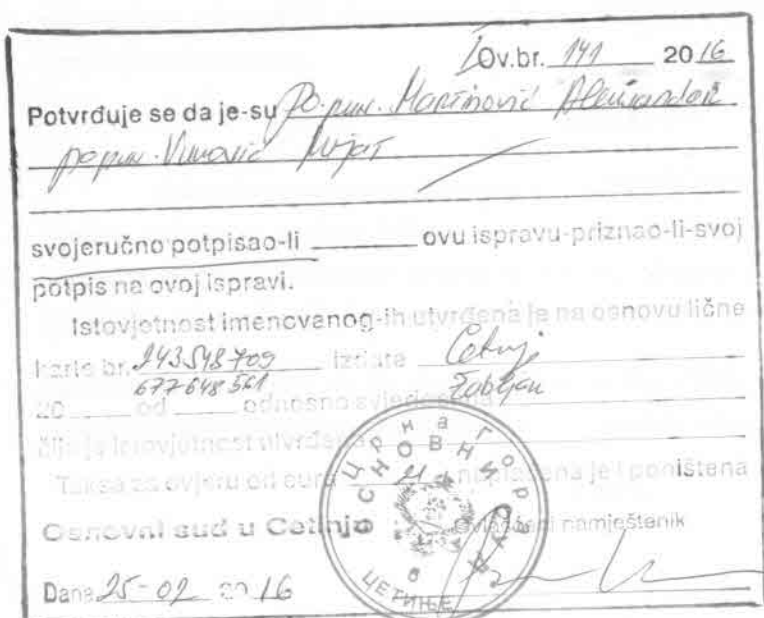 IOv.br. 141 2016
Potvrđuje se da je-su Po pun. Martinović Aleksandar
po pun. Vuković Mujat
svojeručno potpisao-li ovu ispravu-priznao-li-svoj
potpis na ovoj ispravi.
Istovjetnost imenovanog-ih utvrđena je na osnovu lične
karte br. 243548709 izdate Cetinje
677648561 Žabljak
20 od odnosno svjedoka
čija je istovjetnost utvrđena
Taksa za ovjeru od eura naplaćena je i poništena
Osnovni sud u Cetinju
Ovlašćeni namještenik
Црна Гора
ОСНОВНИ
ЦЕТИЊЕ
Dana 25-02 2016